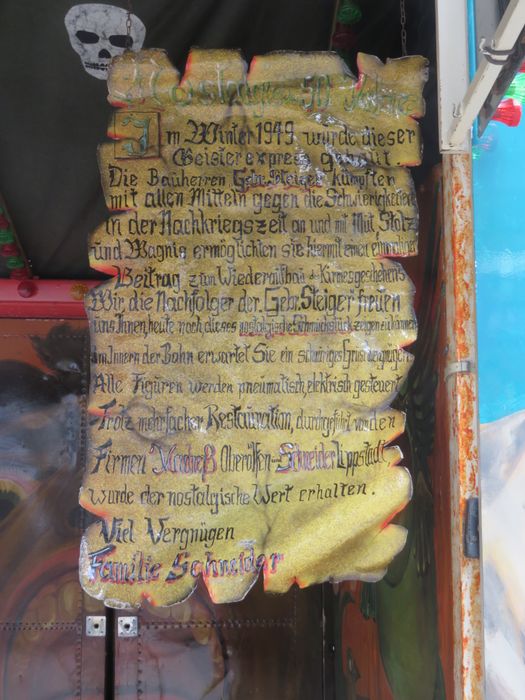 Nostalgie 50 Jahre
Im Winter 1949 wurde dieser
Geisterexpress gebaut.
Die Bauherren Gebr. Steiger kämpften
mit allen Mitteln gegen die Schwierigkeiten
in der Nachkriegszeit an und mit Mut, Stolz
und Wagnis ermöglichten sie hiermit einen
Beitrag zum Wiederaufbau des Kirmesgeschehens
Wir die Nachfolger der Gebr. Steiger freuen
uns Ihnen, heute noch dieses nostalgische Schmuckstück zeigen zu können
im Innern der Bahn erwartet Sie ein schauriges Gruselvergnügen
Alle Figuren werden pneumatisch, elektrisch gesteuert
Trotz mehrfacher Restauration, durchgeführt von den
Firmen Oberolfen Schneider Lippstadt,
wurde der nostalgische Wert erhalten.
Viel Vergnügen
Familie Schneider